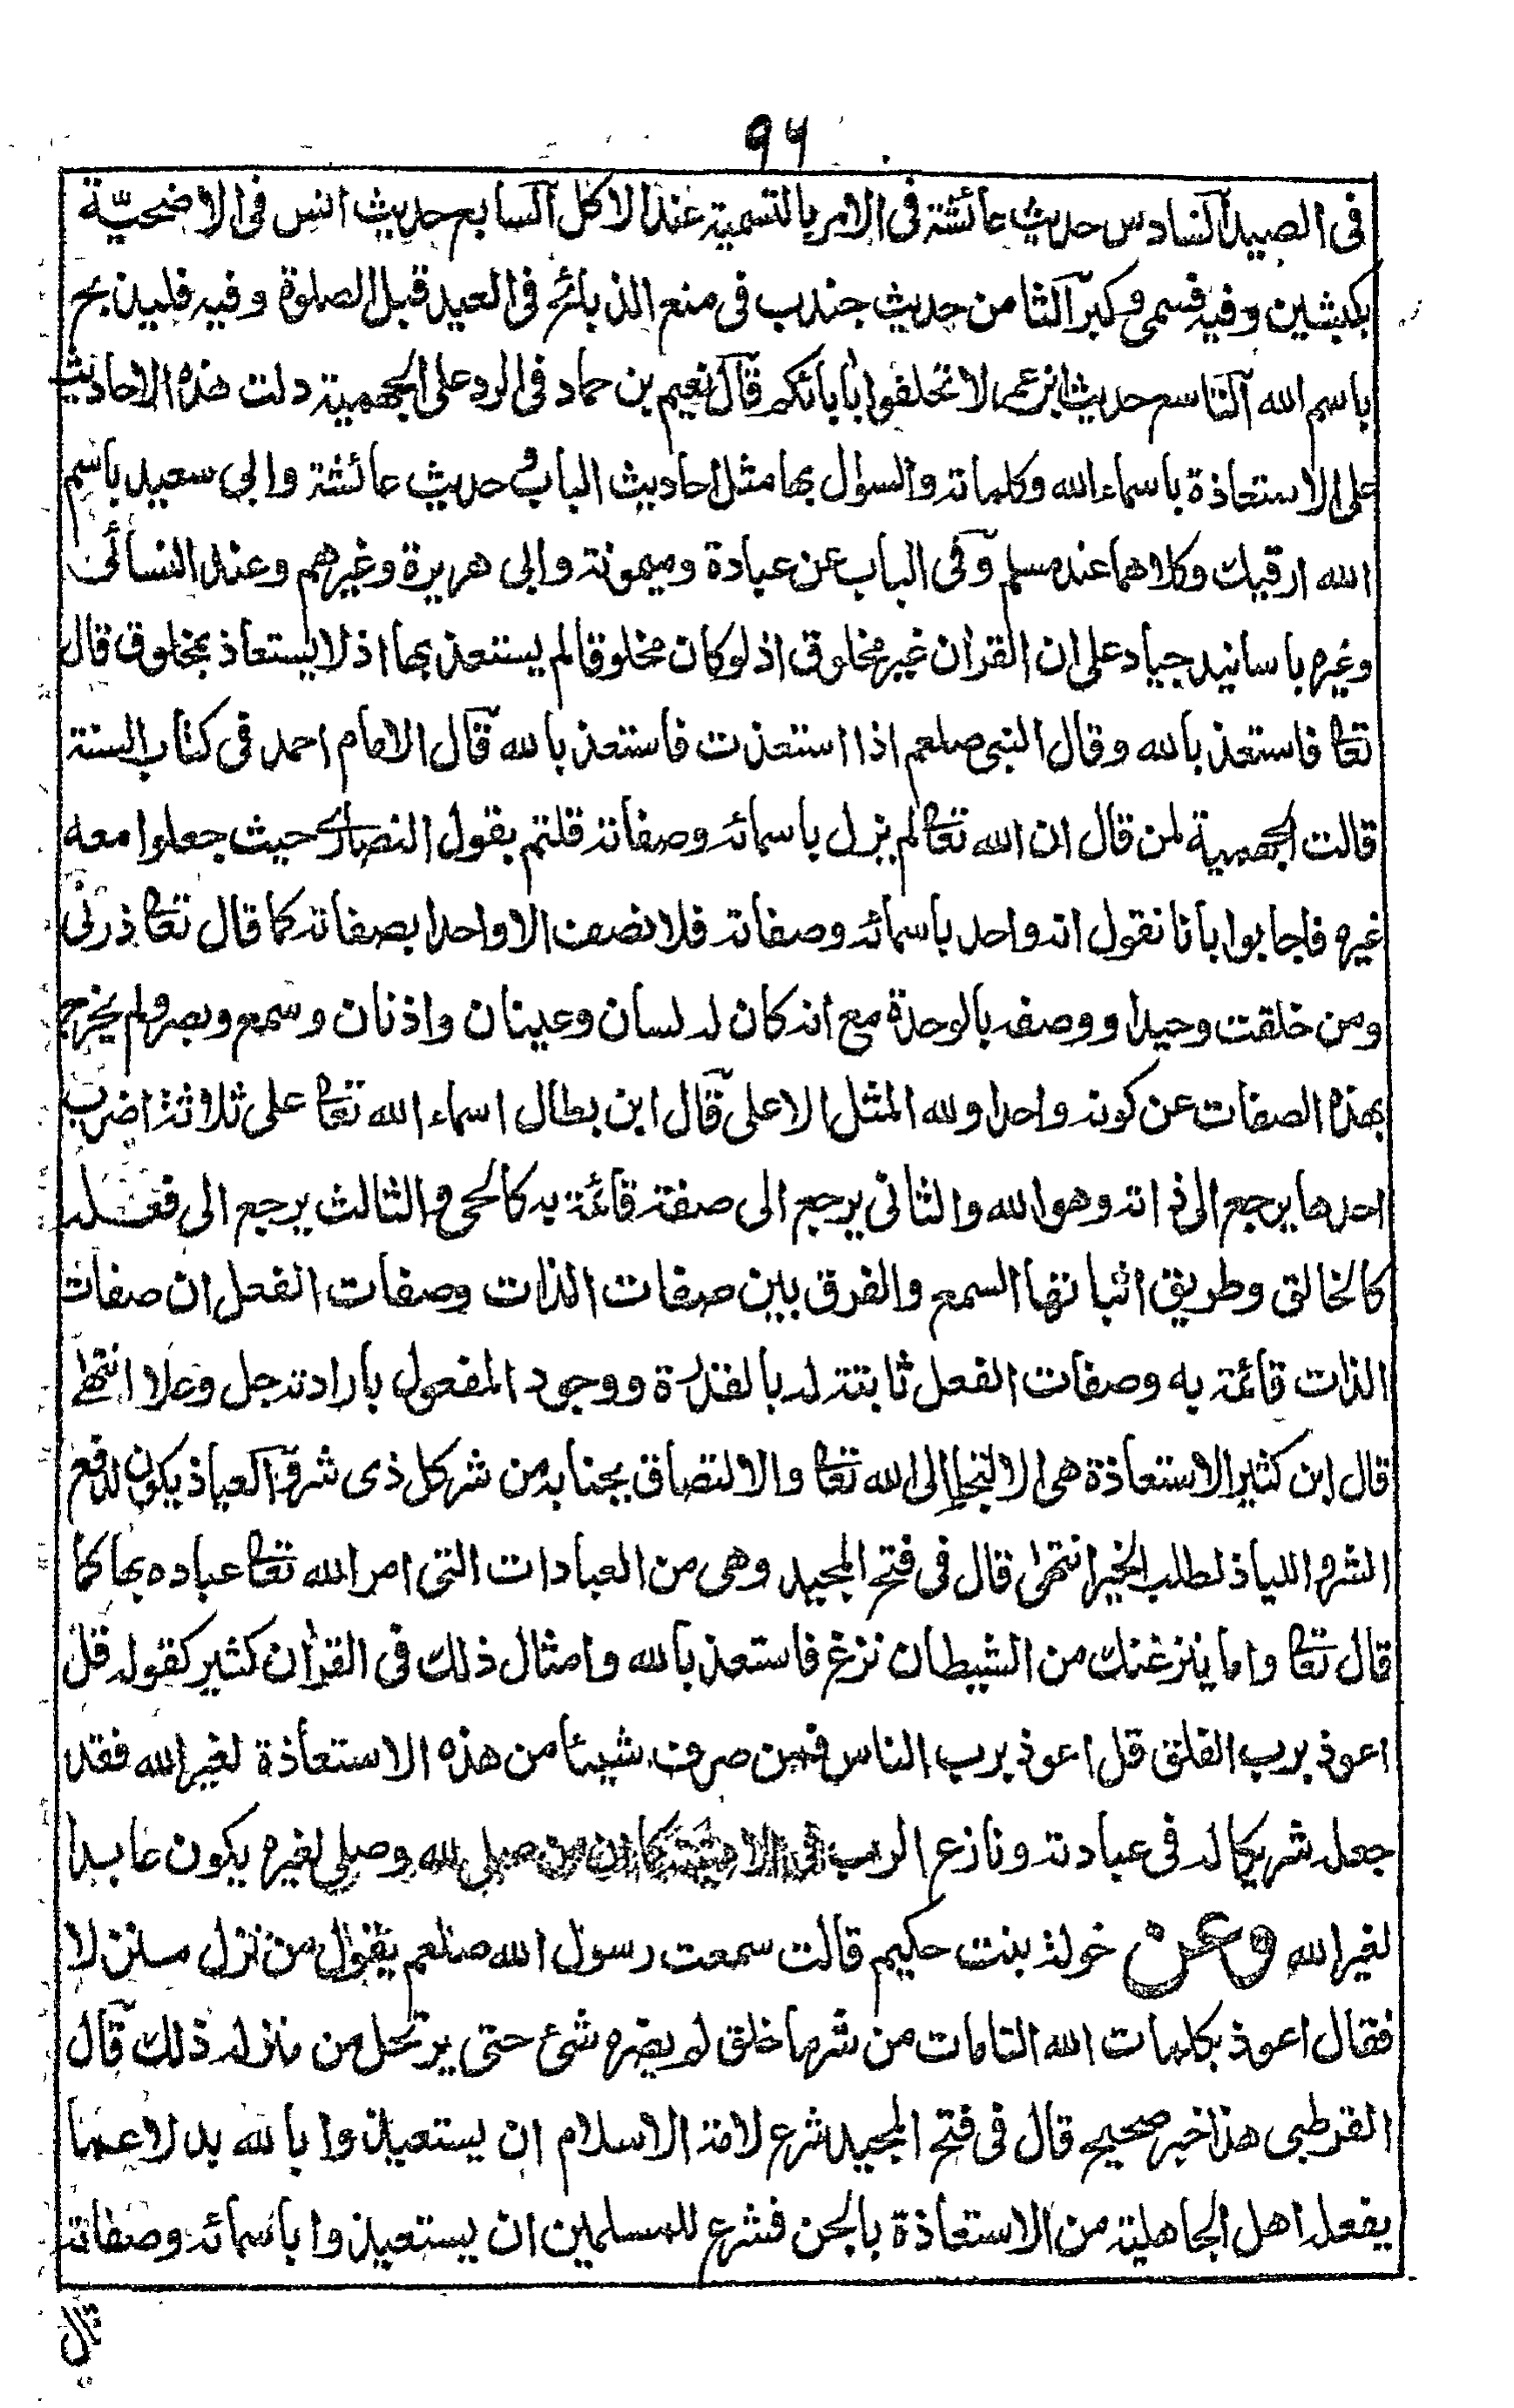 ٩٦
فى الصيد السادس حديث عائشة فى الامر بالتسمية عند الاكل السابع حديث انس فى الاضحيّة
بكبشين وفيه فسمى وكبر الثامن حديث جندب فى منع الذبائح فى العيد قبل الصلوة وفيه فليذبح
باسم الله التاسع حديث ابن عمر لا تحلفوا بآبائكم قال نعيم بن حماد فى الرد على الجهمية دلت هذه الاحاديث
على الاستعاذة باسماء الله وكلماته والسؤال بها مثل احاديث الباب وحديث عائشة وابى سعيد باسم
الله ارقيك وكلاهما عند مسلم وفى الباب عن عبادة وميمونة وابى هريرة وغيرهم وعند النسائى
وغيره باسانيد جياد على ان القرآن غير مخلوق اذ لو كان مخلوقا لم يستعذ بها اذ لا يستعاذ بمخلوق قال
تعا فاستعذ بالله وقال النبى صلعم اذا استعذت فاستعذ بالله قال الامام احمد فى كتاب السنة
قالت الجهمية لمن قال ان الله تعا لم يزل باسمائه وصفاته قلتم بقول النصارى حيث جعلوا معه
غيره فاجابوا بانا نقول انه واحد باسمائه وصفاته فلا نصف الا واحدا بصفاته كما قال تعا ذرنى
ومن خلقت وحيدا ووصفه بالوحدة مع انه كان له لسان وعينان واذنان وسمع وبصر ولم يخرج
بهذه الصفات عن كونه واحدا ولله المثل الاعلى قال ابن بطال اسماء الله تعا على ثلاثة اضرب
احدها يرجع الى ذاته وهو الله والثانى يرجع الى صفة قائمة به كالحى والثالث يرجع الى فعله
كالخالق وطريق اثباتها السمع والفرق بين صفات الذات وصفات الفعل ان صفات
الذات قائمة به وصفات الفعل ثابتة له بالقدرة ووجود المفعول بارادته جل وعلا انتهى
قال ابن كثير الاستعاذة هى الالتجاء الى الله تعا والالتصاق بجنابه من شر كل ذى شر والعياذ يكون لدفع
الشر واللياذ لطلب الخير انتهى قال فى فتح المجيد وهى من العبادات التى امر الله تعا عباده بها كما
قال تعا واما ينزغنك من الشيطان نزغ فاستعذ بالله وامثال ذلك فى القرآن كثير كقوله قل
اعوذ برب الفلق قل اعوذ برب الناس فمن صرف شيئا من هذه الاستعاذة لغير الله فقد
جعله شريكا له فى عبادته ونازع الرب فى من صلى لله وصلى لغيره يكون عابدا
لغير الله وعن خولة بنت حكيم قالت سمعت رسول الله صلعم يقول من نزل منزلا
فقال اعوذ بكلمات الله التامات من شر ما خلق لم يضره شئ حتى يرتحل من منزله ذلك قال
القرطبى هذا خبر صحيح قال فى فتح المجيد شرع لامة الاسلام ان يستعيذوا بالله بدلا عما
يفعله اهل الجاهلية من الاستعاذة بالجن فشرع للمسلمين ان يستعيذوا باسمائه وصفاته
قال